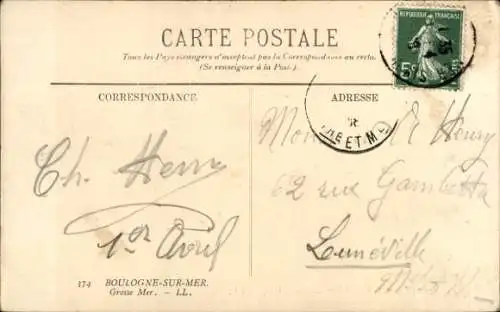 CARTE POSTALE
Tous les Pays étrangers n'acceptent pas la Correspondance au recto.
(Se renseigner à la Poste.)
CORRESPONDANCE
ADRESSE
REPUBLIQUE FRANÇAISE
5c
ET M
Ch. Henry
1er Avril
Henry
62 rue Gambetta
Lunéville
174 BOULOGNE-SUR-MER.
Grosse Mer. - LL.